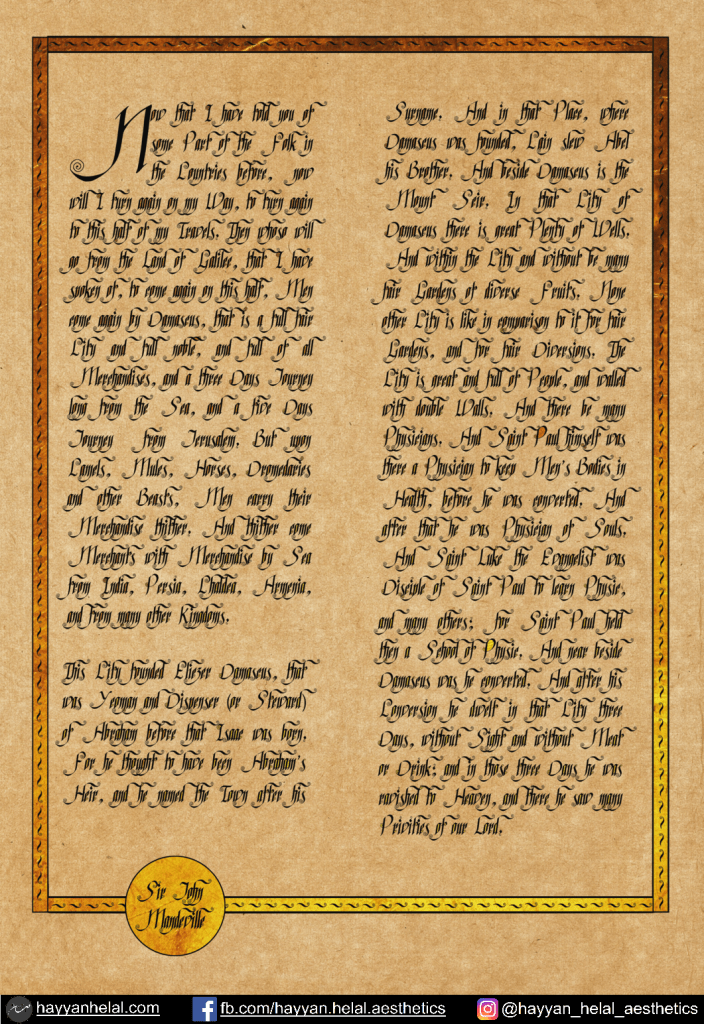 Now that I have told you of
some Part of the Folk in
the Countries before, now
will I turn again on my Way, to turn again
to this half of my Travels. Then whoso will
go from the Land of Galilee, that I have
spoken of, to come again on this half, Men
come again by Damascus, that is a full fair
City and full noble, and full of all
Merchandises, and a three Days Journey
long from the Sea, and a five Days
Journey from Jerusalem. But upon
Camels, Mules, Horses, Dromedaries
and other Beasts, Men carry their
Merchandise thither. And thither come
Merchants with Merchandise by Sea
from India, Persia, Chaldea, Armenia,
and from many other Kingdoms.
This City founded Eliezer Damascus, that
was Yeoman and Dispenser (or Steward)
of Abraham before that Isaac was born.
For he thought to have been Abraham's
Heir, and he named the Town after his
Surname. And in that Place, where
Damascus was founded, Cain slew Abel
his Brother. And beside Damascus is the
Mount Seir. In that City of
Damascus there is great Plenty of Wells.
And within the City and without be many
fair Gardens of diverse Fruits. None
other City is like in comparison to it for fair
Gardens, and for fair Diversions. The
City is great and full of People, and walled
with double Walls. And there be many
Physicians. And Saint Paul himself was
there a Physician to keep Men's Bodies in
Health, before he was converted. And
after that he was Physician of Souls.
And Saint Luke the Evangelist was
Disciple of Saint Paul to learn Physic,
and many others; for Saint Paul held
then a School of Physic. And near beside
Damascus was he converted. And after his
Conversion he dwelt in that City three
Days, without Sight and without Meat
or Drink; and in those three Days he was
ravished to Heaven, and there he saw many
Privities of our Lord.
Sir John
Mandeville
hayyanhelal.com fb.com/hayyan.helal.aesthetics @hayyan_helal_aesthetics